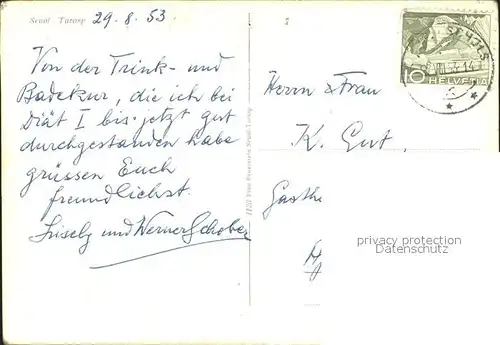 Scuol Tarasp 29.8.53
Von der Trink- und
Badekur, die ich bei
Diät I bis jetzt gut
durchgestanden habe
grüssen Euch
freundlichst.
und Werner Schober
7
10 HELVETIA
Herrn & Frau
K. Gut,
Gasth
privacy protection
Datenschutz